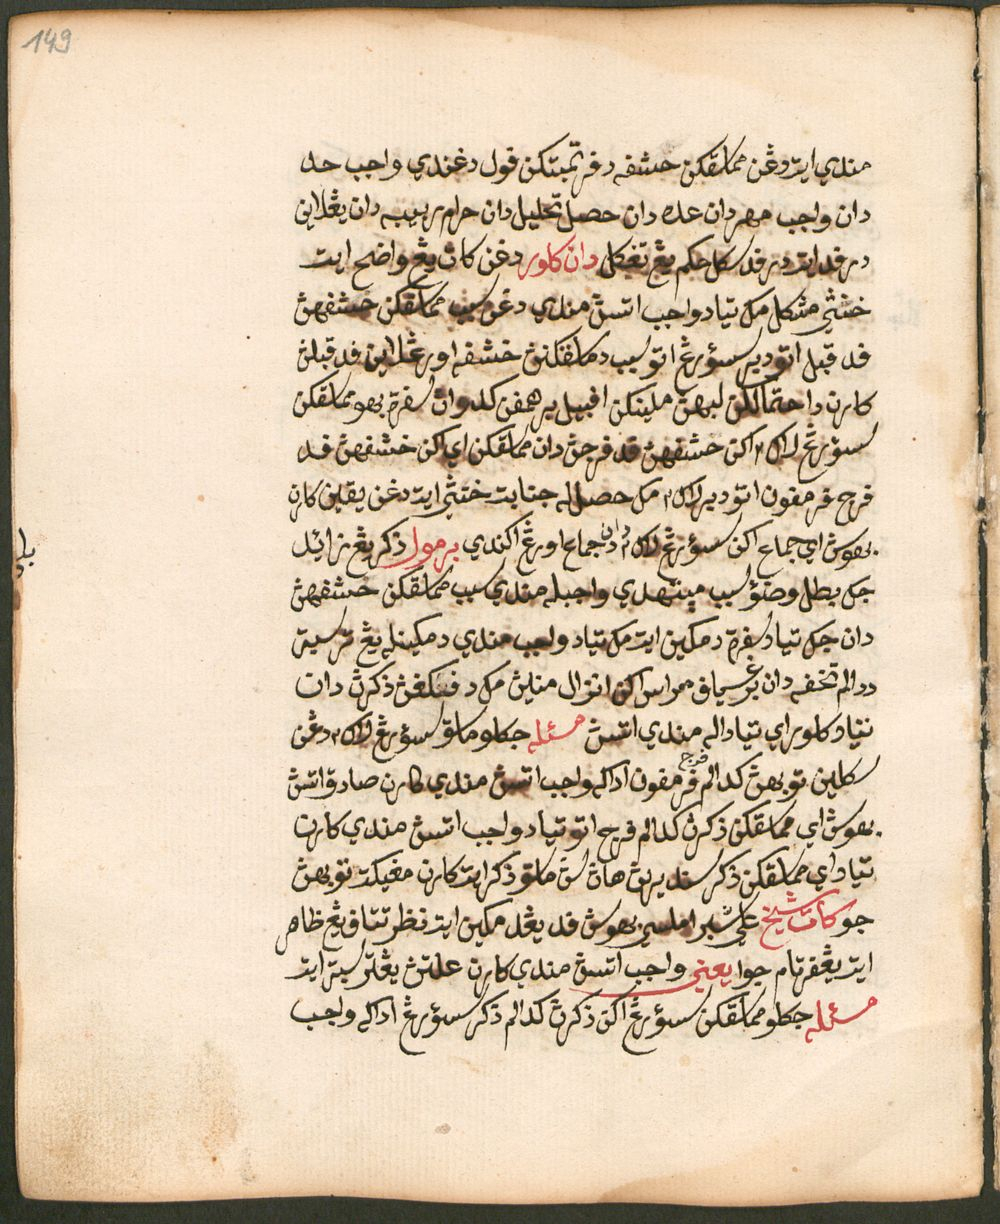 149
مندي ايت دڠن مماسقكن حشفه دفرتمبتكن قول دڠندي واجب حد
دان واجب مهر دان عده دان حصل تحليل دان حرام ربيبه دان يڠلاين
درفد ايت درفد سكل حكم يڠ تڠكل دان كلور دڠن كات يڠ واضح ايت
خنثى مشكل مك تياد واجب اتسڽ مندي دڠن سبب مماسقكن حشفهڽ
فد قبل اتو دبر سؤرڠ اتو سبب دماسقكنڽ حشفه اورڠ لاين فد قبلڽ
كارن د احتمالكن لبهڽ ملينكن افبيل برهمفن كدوان سفرة بهو مماسقكن
سؤرڠ لاك٢ اكن حشفهڽ فد فرجڽ دان مماسقكن اي اكن حشفهڽ فد
فرج فرمفون اتو دبر لاك٢ مك حصله جنابت خنثى ايت دڠن يقين كارن
بهوسڽ اي جماع اكن سؤرڠ لاك٢ دان جماع اورڠ اكندي برمول ذكر يڠ زائد
جك بطل وضؤ سبب مڽنتهدي واجبله مندي سبب مماسقكن حشفهڽ
دان جك تياد سفرة دمكين ايت مك تياد واجب مندي دمكينله يڠ ترسبت
دوالم تحفه دان برڠسياف مراس اكن انزال منيڽ مك دفڬڠڽ ذكرڽ دان
تياد كلور اي تياداله مندي اتسڽ مسئله جكلو ماسق سؤرڠ لاك٢ دڠن
سكلين توبهڽ كدالم فرج فرمفون اداكه واجب اتسڽ مندي كارن صادق اتسڽ
بهوسڽ اي مماسقكن ذكرڽ كدالم فرج اتو تياد واجب اتسڽ مندي كارن
تياد اي مماسقكن ذكر سنديرڽ هاڽ سڽ ماسق ذكر ايت كارن مڠيكت توبهڽ
جو كات شيخ علي شبراملسي بهوسڽ فد يڠدمكين ايت نظر تتاف يڠ ظاهر
ايت يڠفرتام جوا يعني واجب اتسڽ مندي كارن علتڽ يڠترسبت ايت
مسئله جكلو مماسقكن سؤرڠ اكن ذكرڽ كدالم ذكر سؤرڠ اداكه واجب